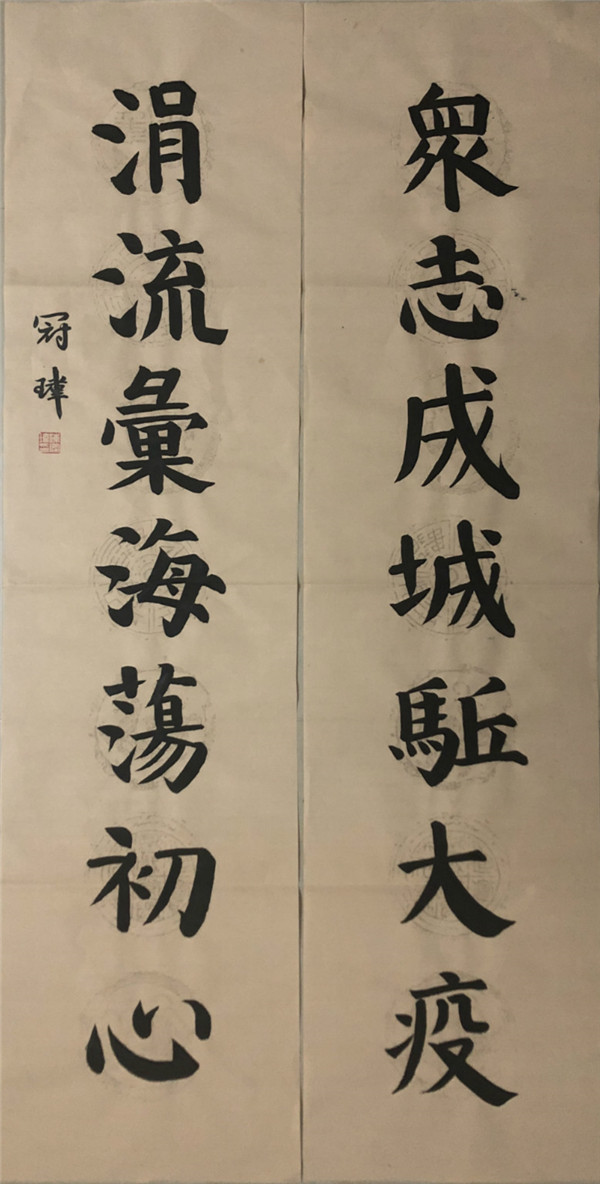 眾志成城駈大疫
涓流彙海蕩初心
冠瑋